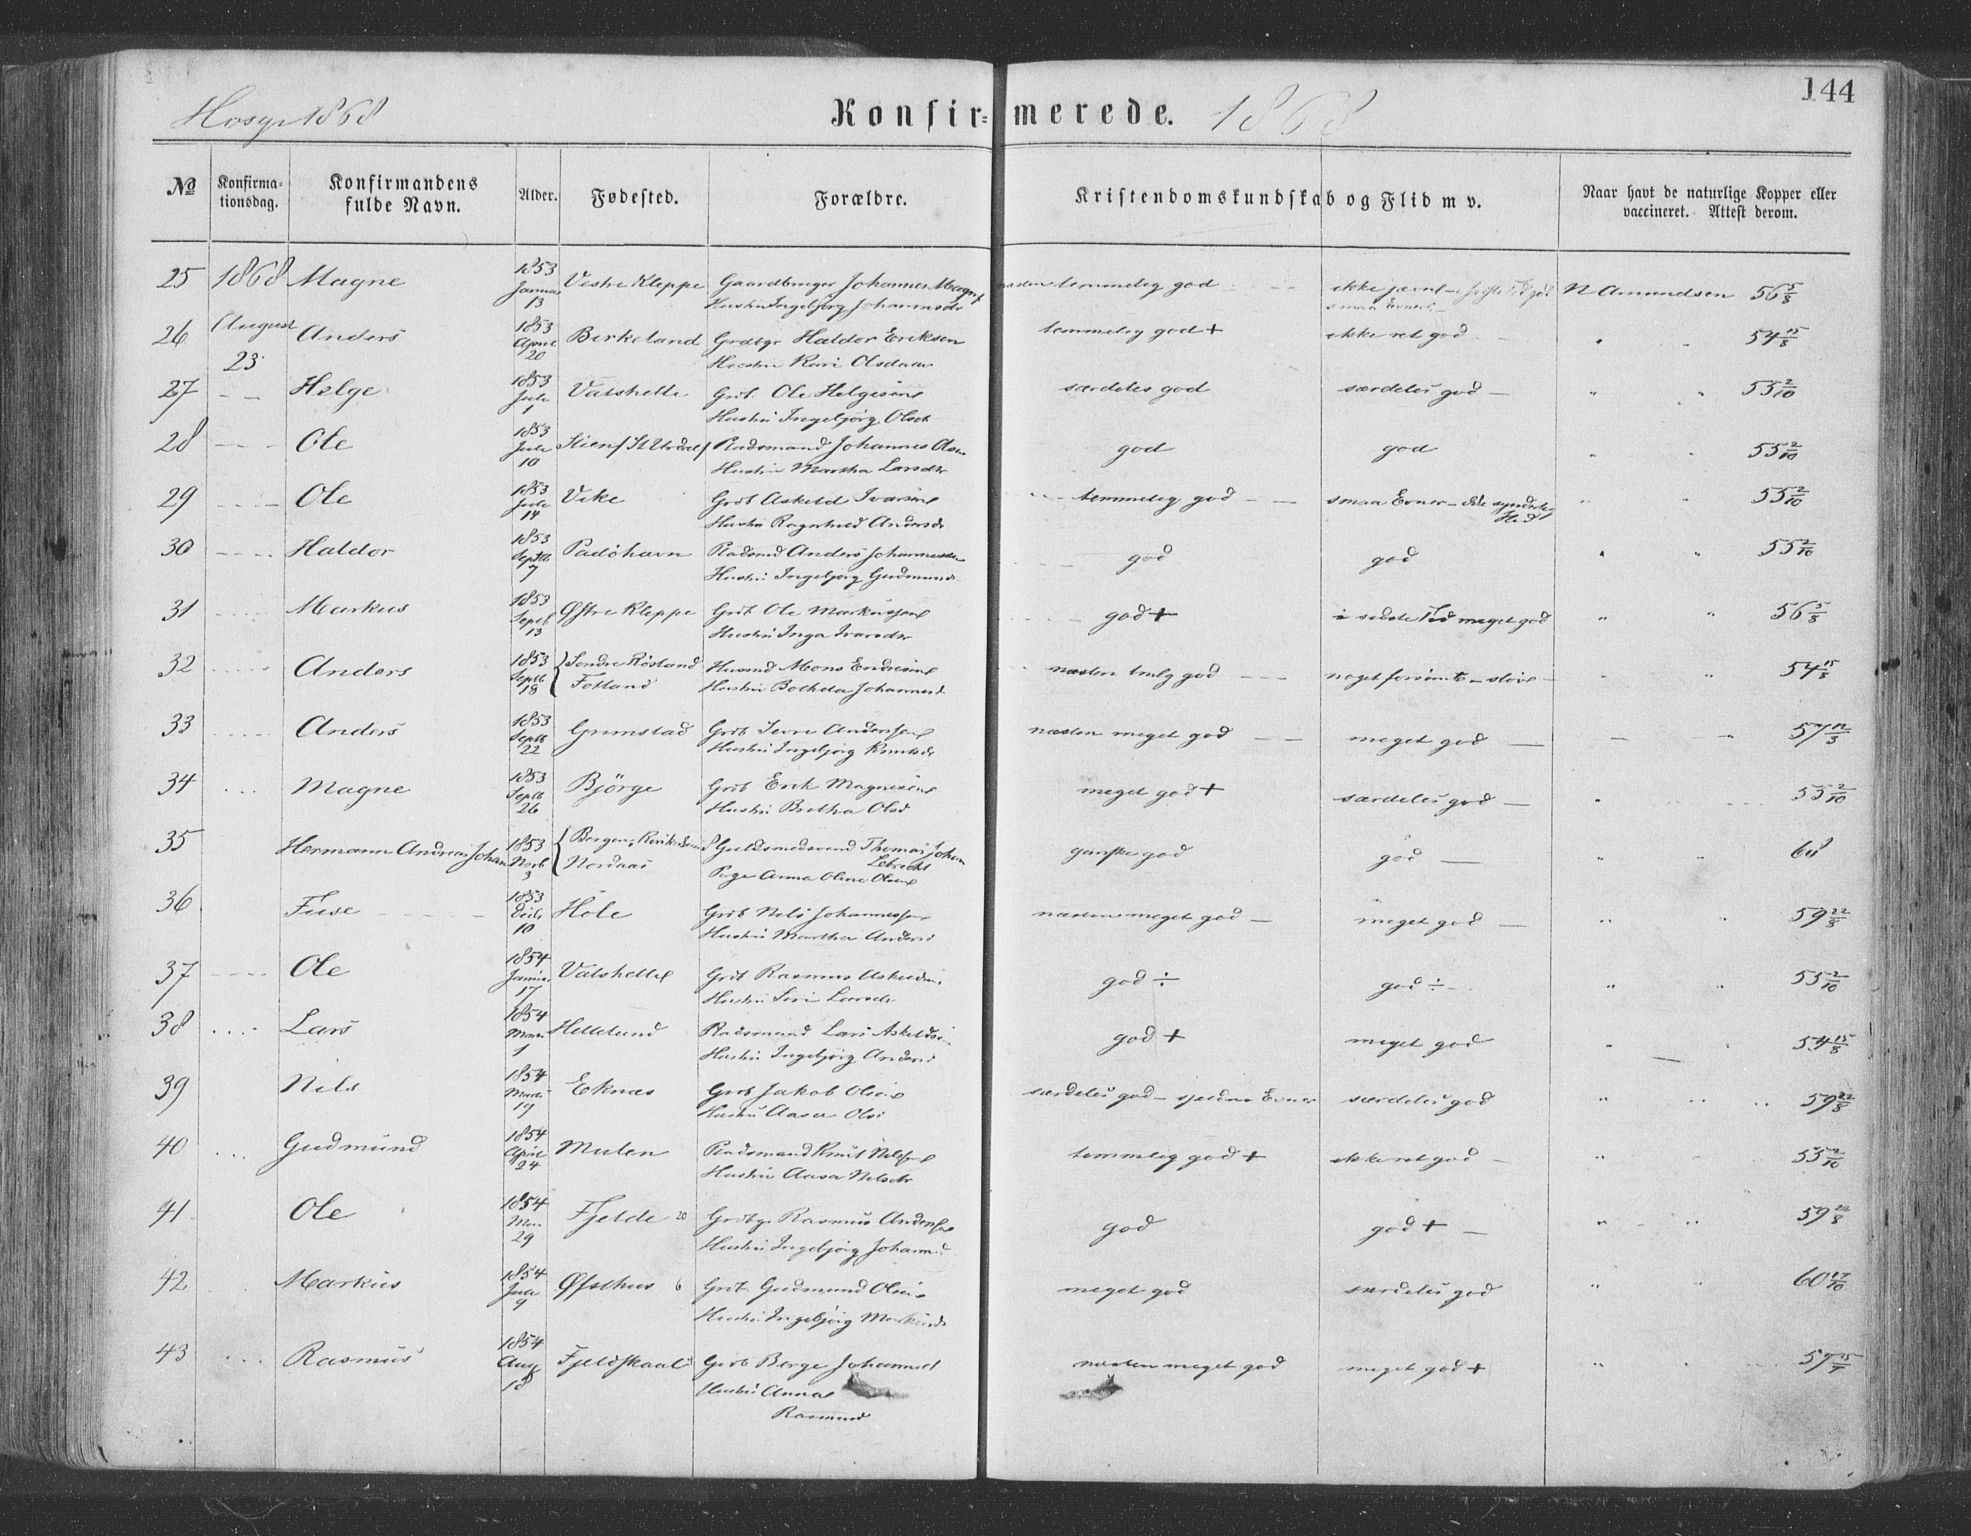 144
Hosgr 1868 Konfirmerede. 1868
№ Konfirmationsdag. Konfirmandens fulde Navn. Alder. Fødested. Forældre. Kristendomskundskab og Flid m v. Naar havt de naturlige Kopper eller vaccineret. Attest derom.
25 1868 Magne 1853 Januar 13 Vestre Kleppe Gaardbruger Johannes Magn næsten temmelig god ikke jævnt N Amundsen 56 5/8
Hustru Ingebjørg Johannesdr smaa Evner
26 August 23 Anders 1853 April 20 Birkeland Grdbgr Haldor Eriksen temmelig god + ikke ret god 54 15/8
Hustru Kari Olsdatter
27 Helge 1853 Juli 1 Vatshelle Grdb Ole Helgesen særdeles god særdeles god 55 2/10
Hustru Ingebjörg Olsdr
28 Ole 1853 Juli 10 Pladsmand Johannes Olsen god god 55 2/10
Hustru Martha Larsdr
29 Ole 1853 Juli 14 Vike Grdb Askild Ivarsen temmelig god smaa Evner 55 2/10
Hustru Ragnhild Andersdr
30 Haldor 1853 Septb 7 Padöhavn Pladsmd Anders Johannessen god god 55 2/10
Hustru Ingebjörg Gudmunds
31 Markus 1853 Septb 13 Østre Kleppe Grdb Ole Markussen god + i sidste Tid meget god 56 5/8
Hustru Inga Ivarsdtr
32 Anders 1853 Septb 18 Søndre Röstand Husmd Mons Endresen næsten tmlg god noget forsömt - slöve 54 15/8
Fotland Hustru Botheta Johannesd
33 Anders 1853 Septb 22 Grimstad Grdb Iver Andersen næsten meget god meget god 57 12/3
Hustru Ingebjörg Knutsdr
34 Magne 1853 Septb 26 Björge Grdb Erik Magnesen meget god + særdeles god 55 2/10
Hustru Bretha Olsd
35 Hermann Andreas Johan 1853 Novb 3 Bergen, Guldsmedsvend Thomas Johan ganske god god 68
Nordaas Lebrecht
Pige Anna Oline Olsen
36 Fuse 1853 Decb 10 Hole Grdb Nils Johannessen næsten meget god meget god 59 22/8
Hustru Martha Andersd
37 Ole 1854 Januar 17 Vatshelle Grdb Rasmus Askilds god ÷ god ÷ 55 2/10
Hustru Siri Larsdr
38 Lars 1854 Marts 1 Hellelund Pladsmand Lars Askeldsen god + meget god 54 15/8
Hustru Ingebjörg Andersd
39 Nils 1854 Marts 19 Eknæs Grdb Jakob Olsen særdeles god - sjeldne Evner særdeles god 59 22/8
Hustru Aasa Olsd
40 Gudmund 1854 April 24 Mulen Pladsmand Knut Nilssen temmelig god + ikke ret god 55 2/10
Hustru Aasa Nilsdtr
41 Ole 1854 Mai 29 Fjelde 20 Grdbgr Rasmus Andersen god god + 59 22/8
Hustru Ingebjörg Johannesd
42 Markus 1854 Juli 9 Øfsthus 6 Grdb Gudmund Olsen meget god særdeles god 60 17/10
Hustru Ingebjörg Markusd
43 Rasmus 1854 Aug 18 Fjeldskaal Grdb Berge Johannes næsten meget god meget god + 59 15/7
Hustru Anna
Rasmusd